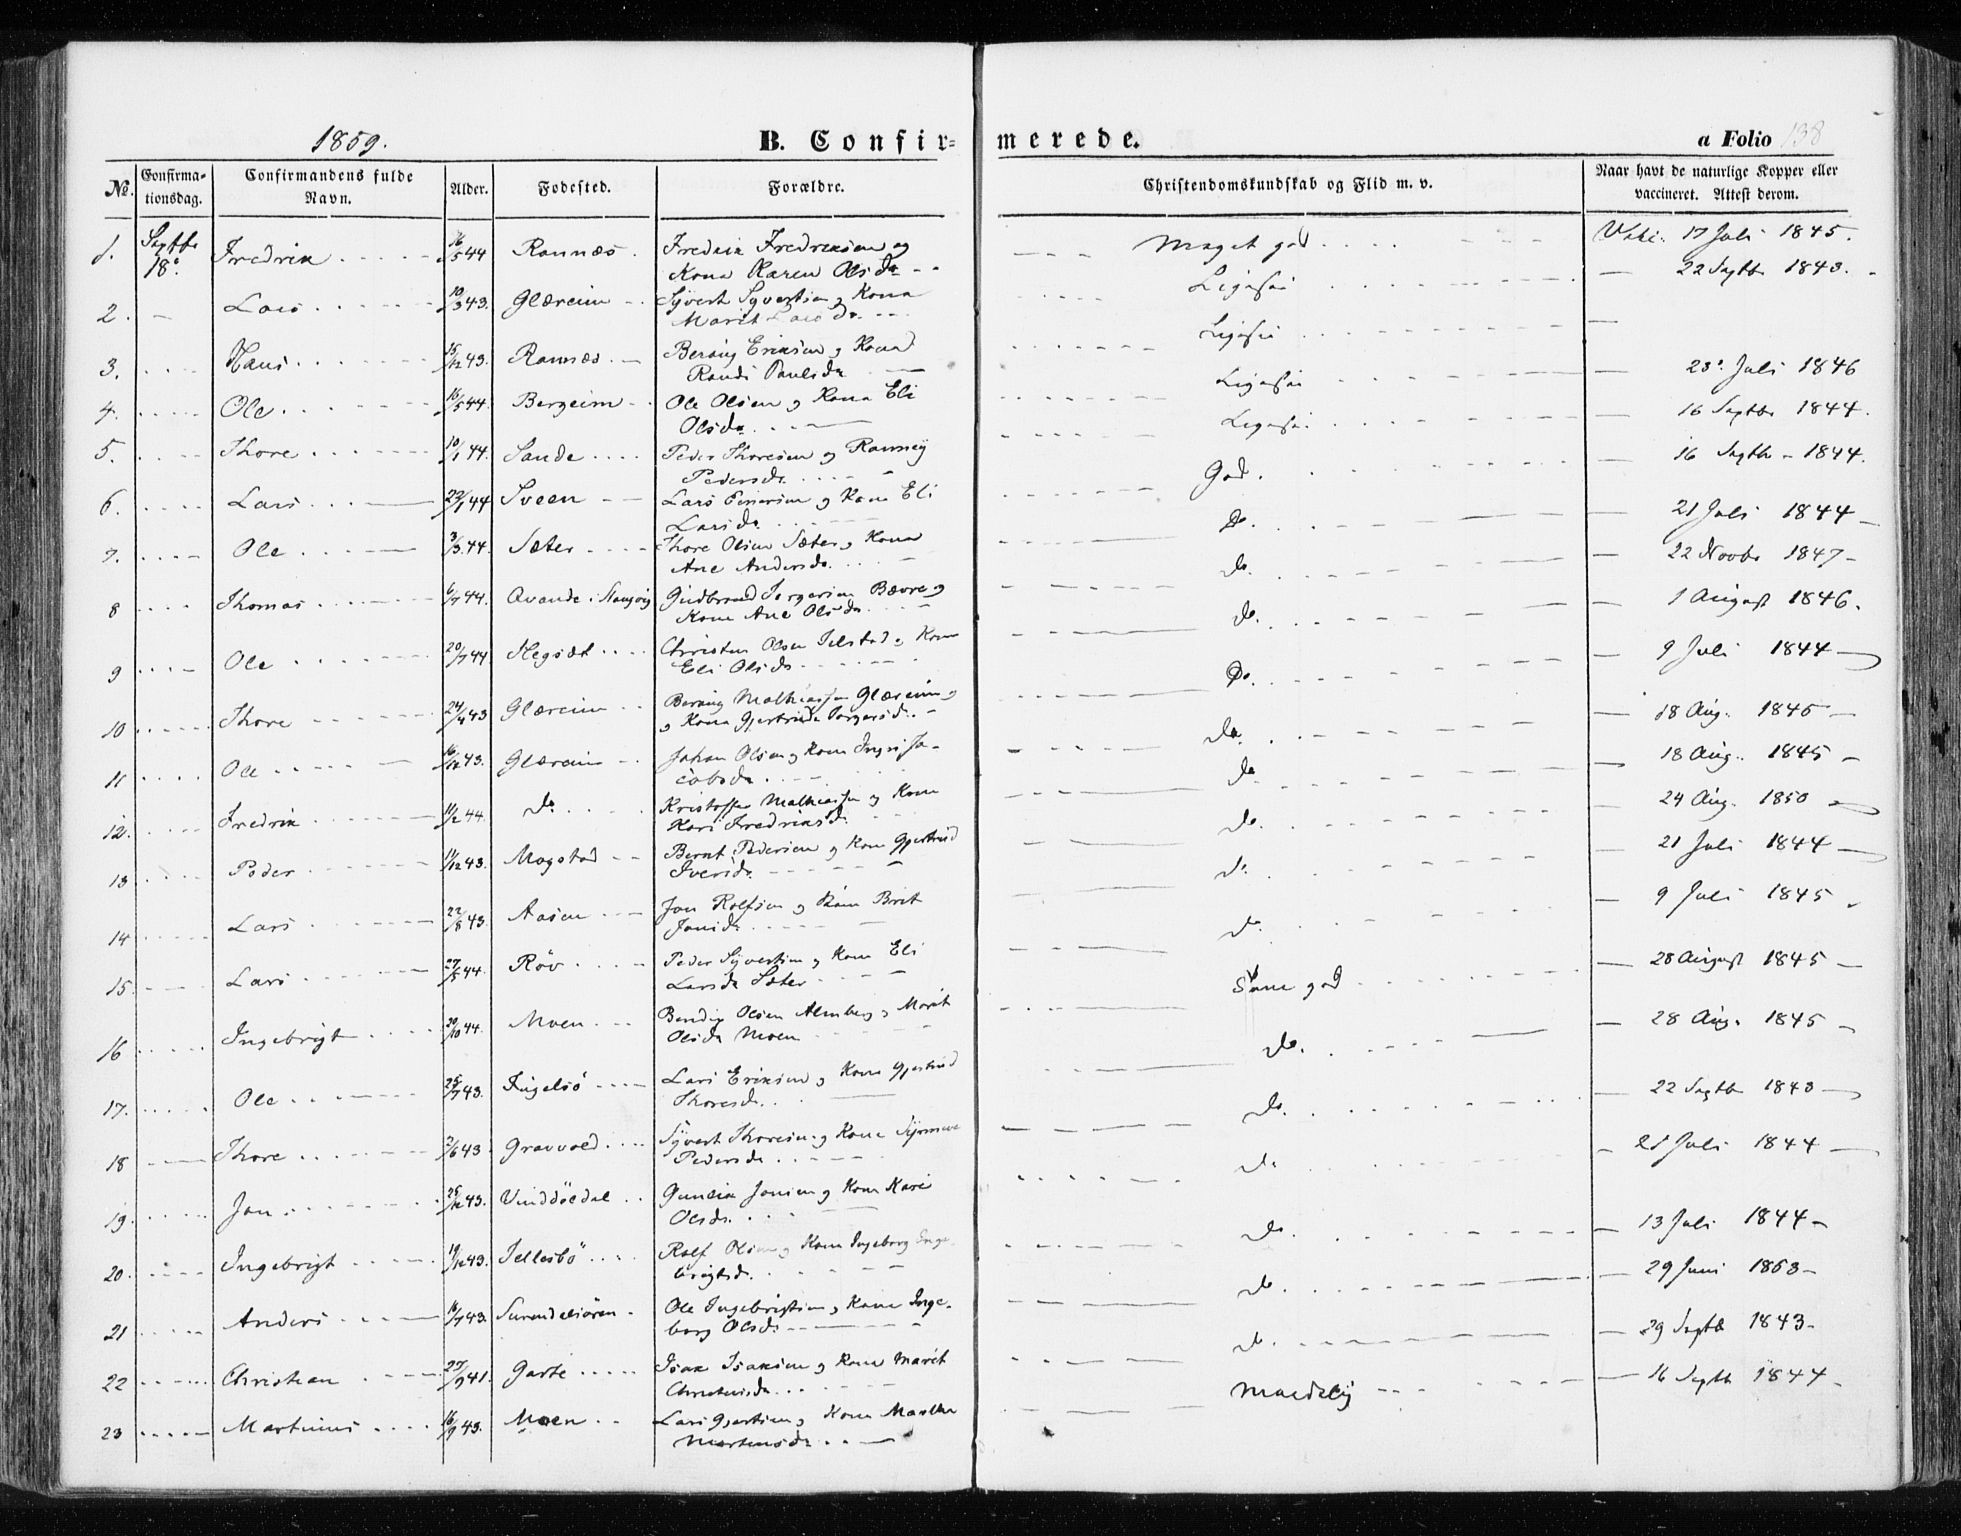 1859.
B. Confir-
merede.
a Folio 138
No.
Confirma-
tionsdag.
Confirmandens fulde
Navn.
Alder.
Fødested.
Forældre.
Christendomskundskab og Flid m. v.
Naar havt de naturlige Kopper eller
vaccineret. Attest derom.
1. Septb. 18. Fredrik 16/5 44 Rannæs. Fredrik Fredriksen og
Kona Karen Olsdr
Meget god
17 Juli 1845.
2. Lars 10/3 43. Glæreim Syvert Syvertsen og Kona
Marit Larsdr
22 Septb 1843.
3. Hans 15/12 43. Rannæs Eriksen og Kona
Randi Paulsdr
4. Ole 16/5 44. Bergeim Ole Olsen og Kona Eli
Olsdr
23. Juli 1846
5. Thore 10/1 44. Sande Peder Thoresen og Ranney
Pedersdr
16 Septbr 1844.
6. Lars 22/1 44 Sveen Lars og Kone Eli
Larsdr
God.
16 Septb 1844.
7. Ole 3/3 44. Sæter Thore Olsen Sæter og Kona
Ane Andersdr
Do.
21 Juli 1844
8 Thomas 6/7 44. i Stangvig Gudbrand Bævre og
Kone Ane Olsdr
do.
22 Novbr 1847
9 Ole 20/7 44. Christen Olsen og Kone
Eli Olsdr
do.
1 August 1846.
10 Thore 24/4 43 Glæreim Mathiassen Glæreim og
og Kona Gjertrude
Do.
9 Juli 1844
11 Ole 16/12 43. Glæreim Johan Olsen og Kone Ingri Ja-
cobsdr
do.
18 Aug. 1845
12. Fredrik 11/2 44. do. Kristoffer Mathiassen og Kone
Kari Fredriksdr
do
18 Aug. 1845
13 Peder 11/12 43. Mogstad Bernt Pedersen og Kone Gjertrud
Iversdr
do.
24 Aug. 1850
14 Lars 22/8 43. Aasen Jon Rolfsen og Kone Brit
Jonsdr
do.
21 Juli 1844
15. Lars 27/5 44. Røv Peder Syvertsen og Kone Eli
Larsdr Sæter
do.
9 Juli 1845
16 Ingebrigt 20/10 44. Moen Olsen Almberg og Marit
Olsdr Moen
god
28 August 1845
17. Ole 25/7 43. Lars Eriksen og Kone Gjertrud
Thoresdr.
do.
28 Aug. 1845
18 Thore 2/6 43. Gravvold Syvert Thoresen og Kone
Pedersdr
do.
22 Septb 1843
19. Jon 25/12 43. Vinddøldal Gunder Jonsen og Kone Kari
Olsdr.
do
21 Juli 1844
20. Ingebrigt 19/12 43. Tellesbø Rolf Olsen og Kone Ingeborg Inge-
brigtsdr.
do.
13 Juli 1844
21 Anders 16/7 43. Surendalsøren Ole Ingebrigtsen og Kone Inge-
borg Olsdr
do.
29 Juni 1853
22 Christian 27/9 41. Garte Isak Isaksen og Kona Marit
Christensdr.
do.
29 Septb 1843
23 Martinus 16/9 43. Moen Lars Gjertsen og Kone Marthe
Martensdr
Maadelig
16 Septb 1844